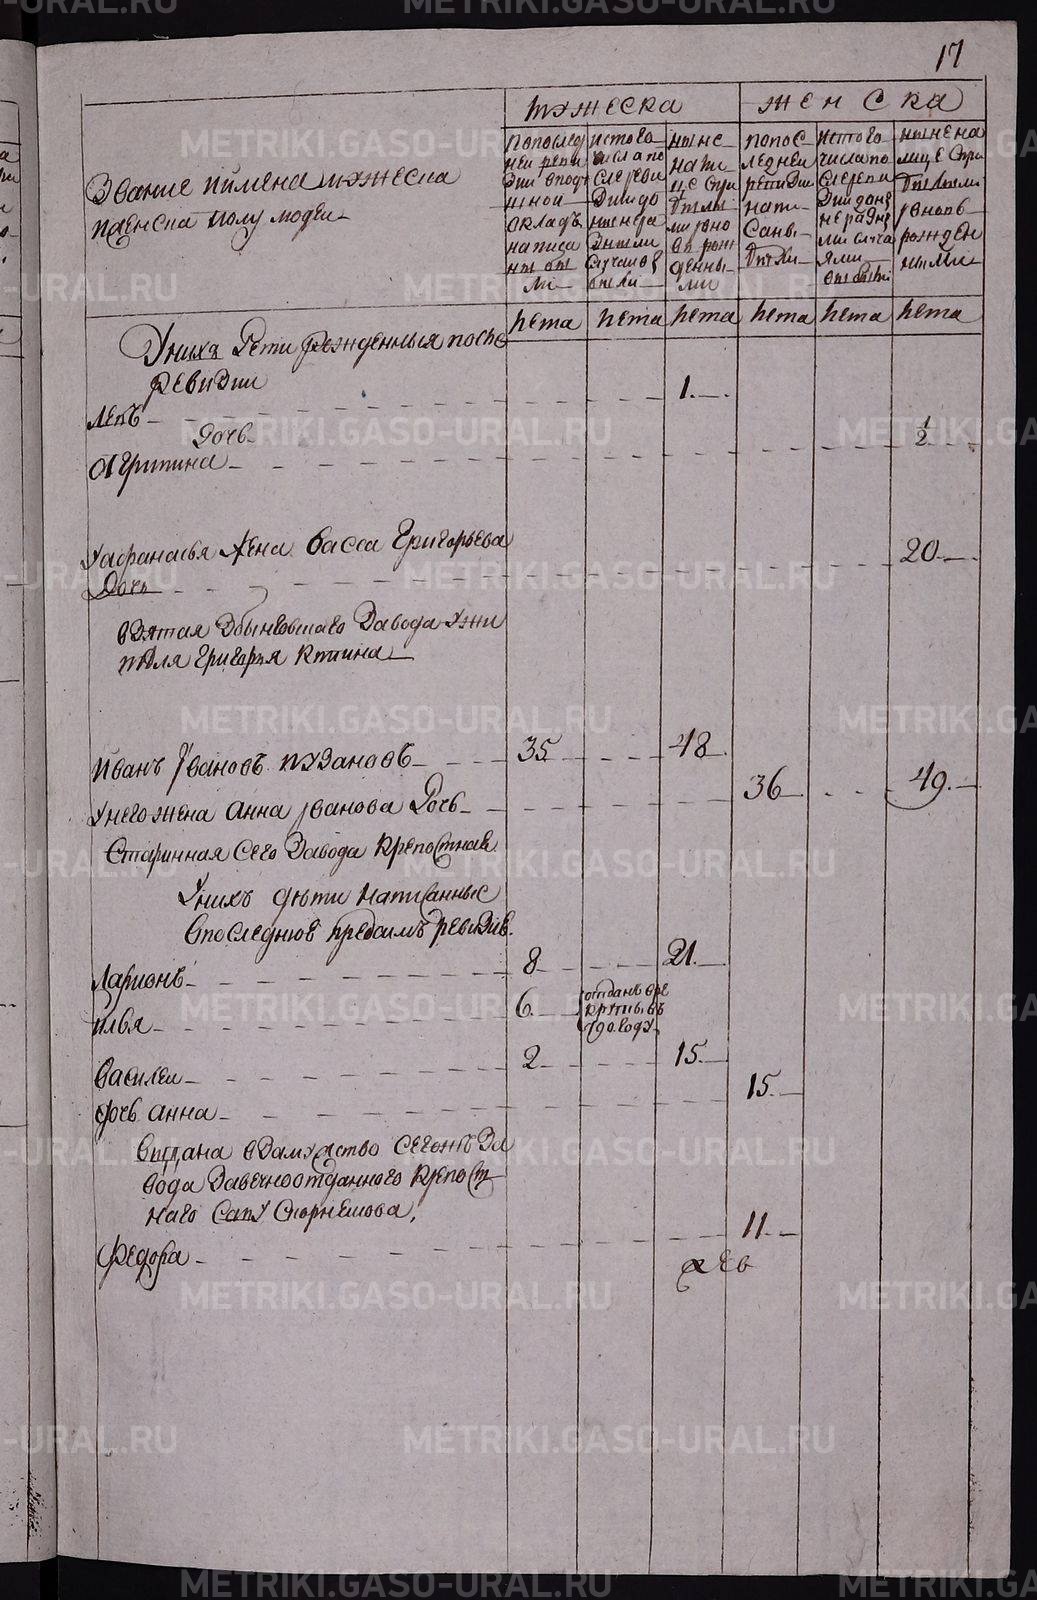 17
мужеска
женска
Звание и имена мужеска
и женска полу людей
по послед
ней реви
зии в под
ушной
окладъ
написа
ны бы
ли
ис того
числа по
сле реви
зии до
ныне ра
зными
случаи
были
ныне
нали
це с при
былы
ми и во
вь рож
денны
ми
по пос
ледней
ревизии
напи
саны
были
ис того
числа по
сле реви
зии до не
не разны
ми случа
ями
ныне на
лице с при
былыми
и вновь
рожден
ными
лета лета лета лета лета лета
У них дети рожденныя после
ревизии
Левъ 1
Дочь
Агрипина 1/2
У Афанасья жена Васса Григорьева 20
Дочь
взятая Збынговшаго завода у жи
теля Григорья Ктина
Иванъ Ивановъ Пузановъ 35 48
У него жена Анна Иванова дочь 36 49
Старинная сего завода крепостная
У них дети написанные
в последнюю пред симъ ревизию
Ларионъ 8 21
Илья 6 отданъ в ре
круты въ
790 году
Василей 2 15
дочь Анна 15
Выдана в замужство сегожъ за
вода за вечноотданного крепост
наго
Федора 11
дев
METRIKI.GASO-URAL.RU